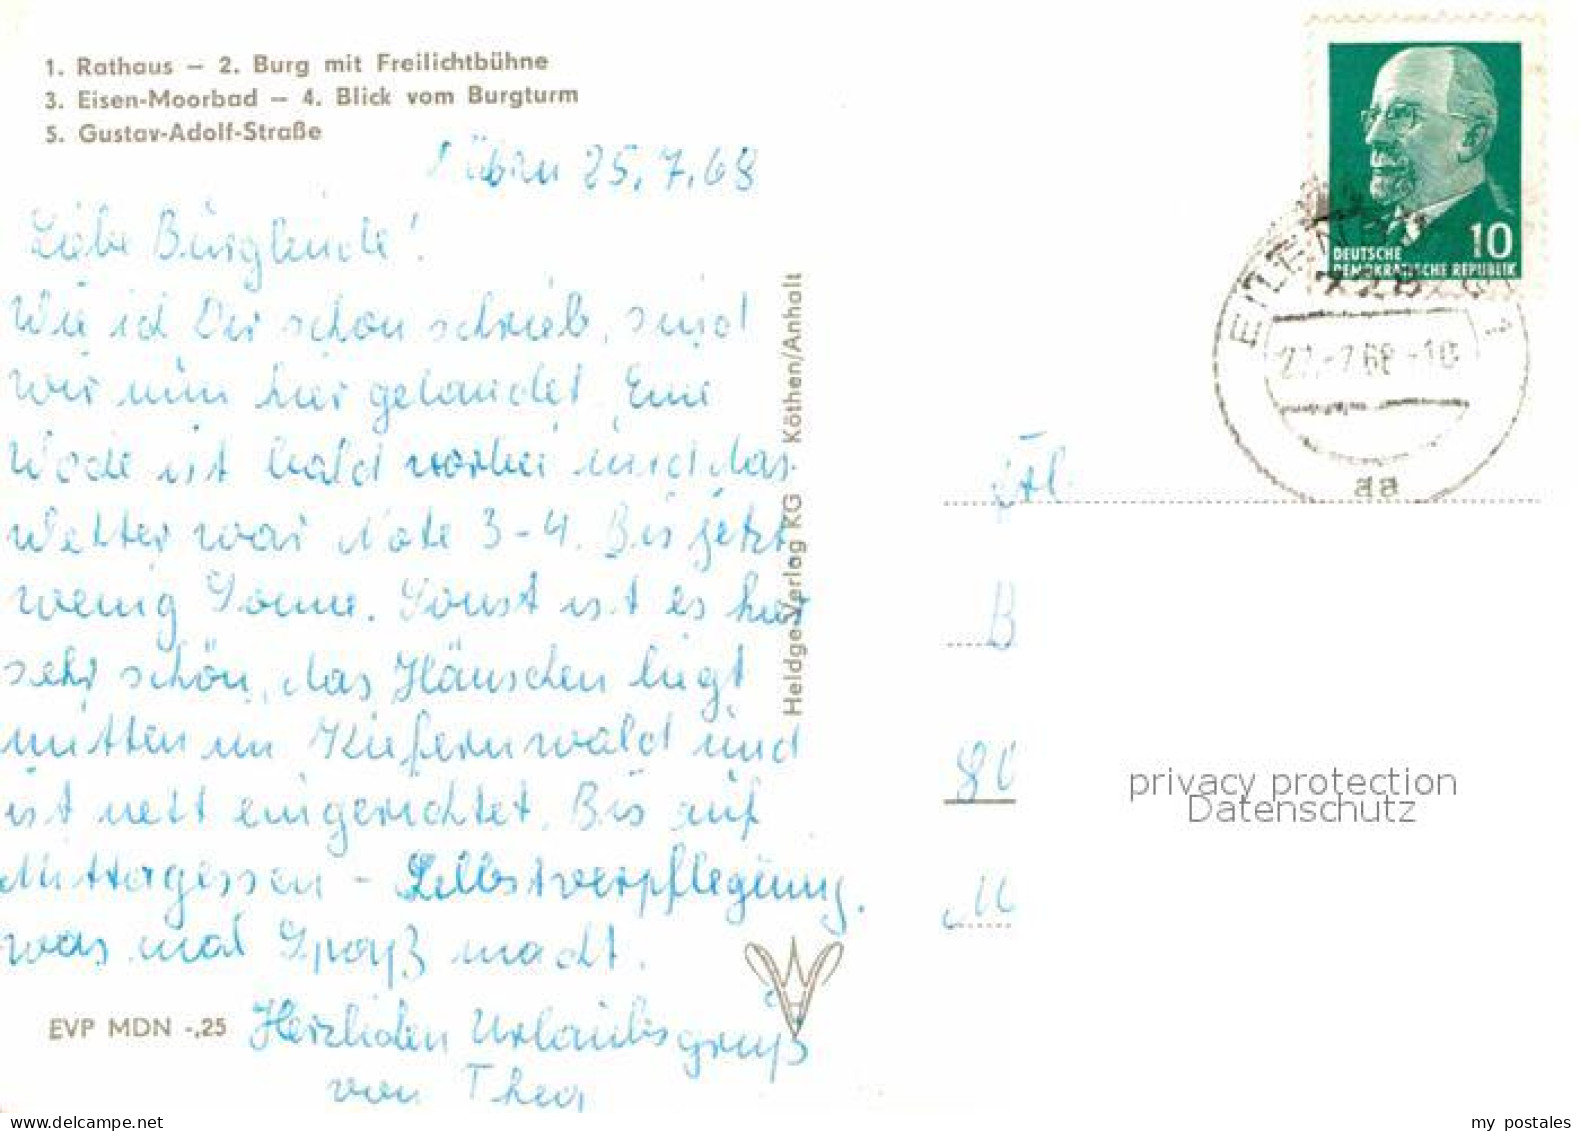 1. Rathaus — 2. Burg mit Freilichtbühne
3. Eisen-Moorbad — 4. Blick vom Burgturm
5. Gustav-Adolf-Straße
25.7.68
Liebe Burglinde!
Wie ich Dir schon schrieb, sind
wir nun hier gelandet. Eine
Woche ist bald vorbei und das
Wetter war Note 3-4. Bis jetzt
wenig Sonne. Sonst ist es hier
sehr schön, das Häuschen liegt
mitten im Kiefernwald und
ist nett eingerichtet. Bis auf
Mittagessen - Selbstverpflegung,
was mal Spaß macht.
Herzlichen Urlaubsgruß
von Thea
EVP MDN -,25
Heldge-Verlag KG Köthen/Anhalt
10
DEUTSCHE
DEMOKRATISCHE REPUBLIK
728
-7.68-10
aa
Frl.
B
80
M
privacy protection
Datenschutz
www.delcampe.net
my postales